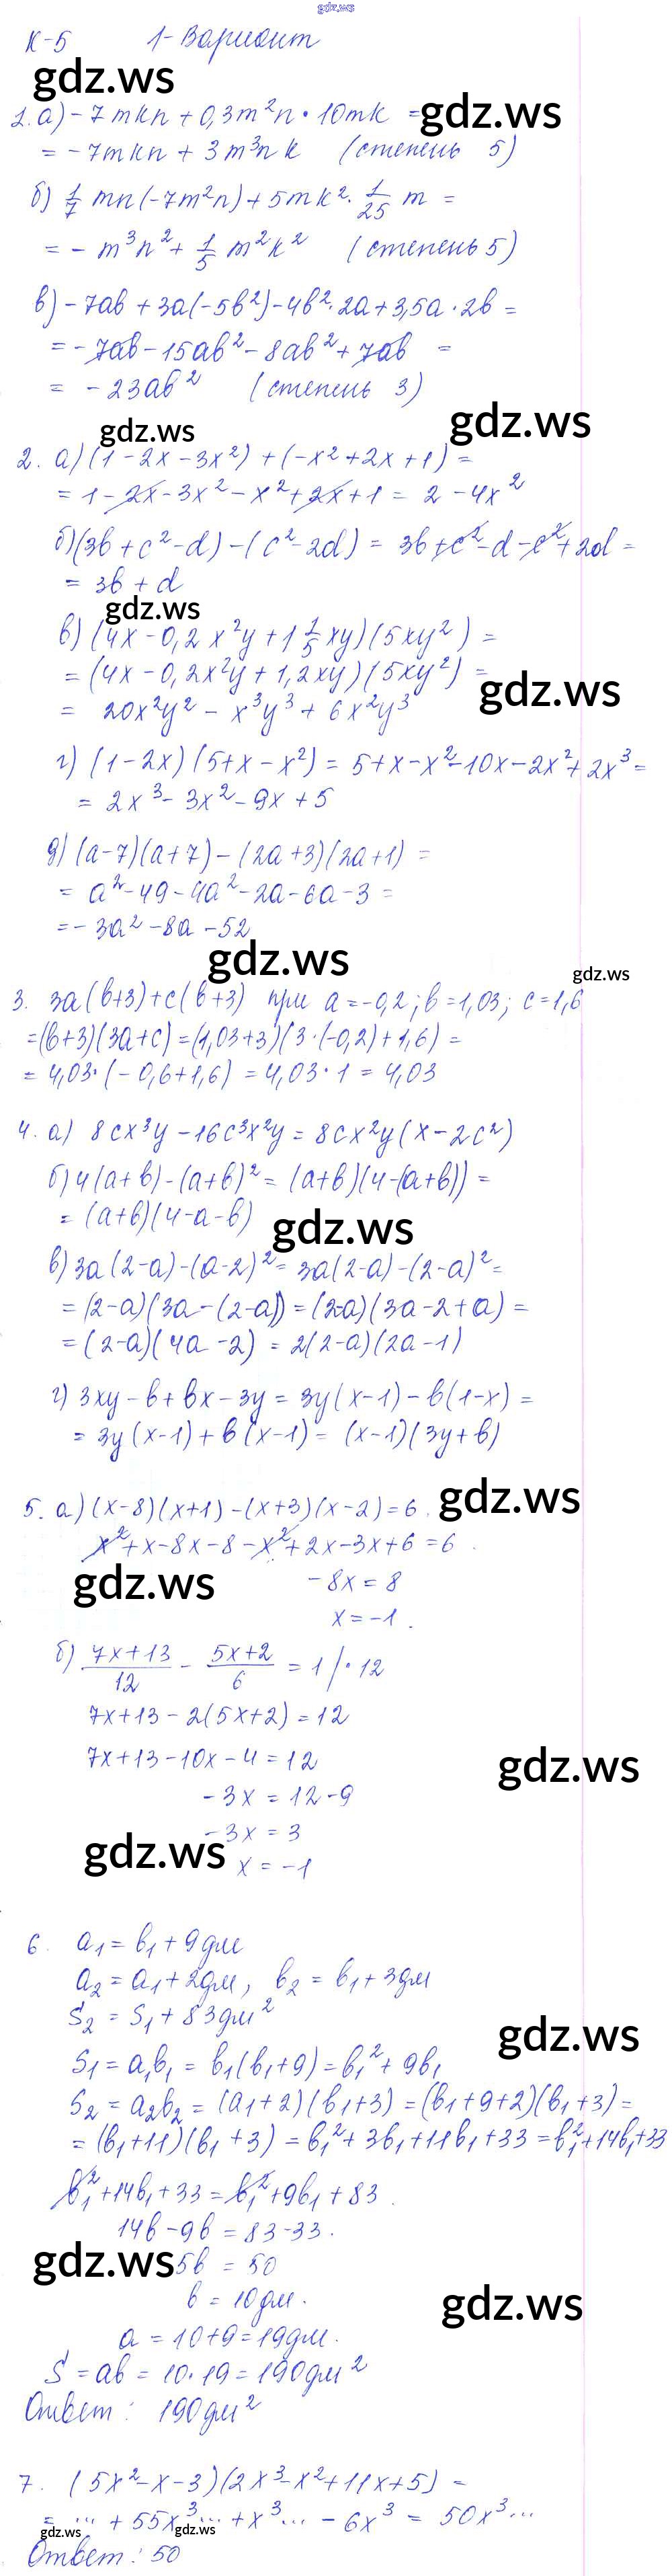 gdz.ws
К-5 1-Вариант
gdz.ws
1. а) -7mkn + 0,3m²n · 10mk =
gdz.ws
= -7mkn + 3m³nk (степень 5)
б) 1/7 mn(-7m²n) + 5mk² · 1/25 m =
= -m³n² + 1/5 m²k² (степень 5)
в) -7ab + 3a(-5b²) - 4b² · 2a + 3,5a · 2b =
= -7ab - 15ab² - 8ab² + 7ab =
= -23ab² (степень 3)
gdz.ws
gdz.ws
2. а) (1 - 2x - 3x²) + (-x² + 2x + 1) =
= 1 - 2x - 3x² - x² + 2x + 1 = 2 - 4x²
б) (3b + c² - d) - (c² - 2d) = 3b + c² - d - c² + 2d =
= 3b + d
gdz.ws
в) (4x - 0,2x²y + 1 1/5 xy)(5xy²) =
= (4x - 0,2x²y + 1,2xy)(5xy²) =
gdz.ws
= 20x²y² - x³y³ + 6x²y³
г) (1 - 2x)(5 + x - x²) = 5 + x - x² - 10x - 2x² + 2x³ =
= 2x³ - 3x² - 9x + 5
д) (a - 7)(a + 7) - (2a + 3)(2a + 1) =
= a² - 49 - 4a² - 2a - 6a - 3 =
= -3a² - 8a - 52
gdz.ws
gdz.ws
3. 3a(b+3) + c(b+3) при a = -0,2; b = 1,03; c = 1,6
= (b+3)(3a+c) = (1,03+3)(3·(-0,2)+1,6) =
= 4,03·(-0,6+1,6) = 4,03·1 = 4,03
4. а) 8cx³y - 16c³x²y = 8cx²y(x - 2c²)
б) 4(a+b) - (a+b)² = (a+b)(4-(a+b)) =
= (a+b)(4-a-b)
gdz.ws
в) 3a(2-a) - (a-2)² = 3a(2-a) - (2-a)² =
= (2-a)(3a-(2-a)) = (2-a)(3a-2+a) =
= (2-a)(4a-2) = 2(2-a)(2a-1)
г) 3xy - b + bx - 3y = 3y(x-1) - b(1-x) =
= 3y(x-1) + b(x-1) = (x-1)(3y+b)
gdz.ws
5. а) (x-8)(x+1) - (x+3)(x-2) = 6
x² + x - 8x - 8 - x² + 2x - 3x + 6 = 6
gdz.ws
-8x = 8
x = -1.
б) (7x+13)/12 - (5x+2)/6 = 1 /·12
7x+13 - 2(5x+2) = 12
7x+13 - 10x - 4 = 12
gdz.ws
-3x = 12-9
-3x = 3
gdz.ws
x = -1
6. a₁ = b₁ + 9дм
a₂ = a₁ + 2дм, b₂ = b₁ + 3дм
S₂ = S₁ + 83дм²
gdz.ws
S₁ = a₁b₁ = b₁(b₁+9) = b₁² + 9b₁
S₂ = a₂b₂ = (a₁+2)(b₁+3) = (b₁+9+2)(b₁+3) =
= (b₁+11)(b₁+3) = b₁² + 3b₁ + 11b₁ + 33 = b₁² + 14b₁ + 33
b₁² + 14b₁ + 33 = b₁² + 9b₁ + 83.
14b - 9b = 83-33.
gdz.ws
5b = 50
b = 10дм.
gdz.ws
a = 10+9 = 19дм.
S = ab = 10·19 = 190дм²
Ответ: 190дм²
7. (5x²-x-3)(2x³-x²+11x+5) =
= ... + 55x³... + x³... - 6x³ = 50x³...
gdz.ws
gdz.ws
Ответ: 50